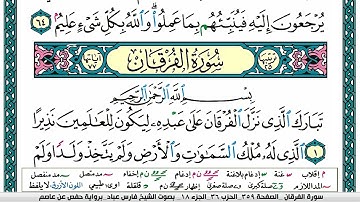 يُرْجَعُونَ إِلَيْهِ فَيُنَبِّئُهُم بِمَا عَمِلُوا۟ ۗ وَٱللَّهُ بِكُلِّ شَىْءٍ عَلِيمٌۢ ٦٤
ترتيبها ٢٥ سُورَةُ الْفُرْقَانِ آياتها ٧٧
بِسْمِ ٱللَّهِ ٱلرَّحْمَٰنِ ٱلرَّحِيمِ
تَبَارَكَ ٱلَّذِى نَزَّلَ ٱلْفُرْقَانَ عَلَىٰ عَبْدِهِۦ لِيَكُونَ لِلْعَٰلَمِينَ نَذِيرًا ١
ٱلَّذِى لَهُۥ مُلْكُ ٱلسَّمَٰوَٰتِ وَٱلْأَرْضِ وَلَمْ يَتَّخِذْ وَلَدًا وَلَمْ
سورة الفرقان الصفحة ٣٥٩ الحزب ٣٦ الجزء ١٨ بصوت الشيخ فارس عباد برواية حفص عن عاصم